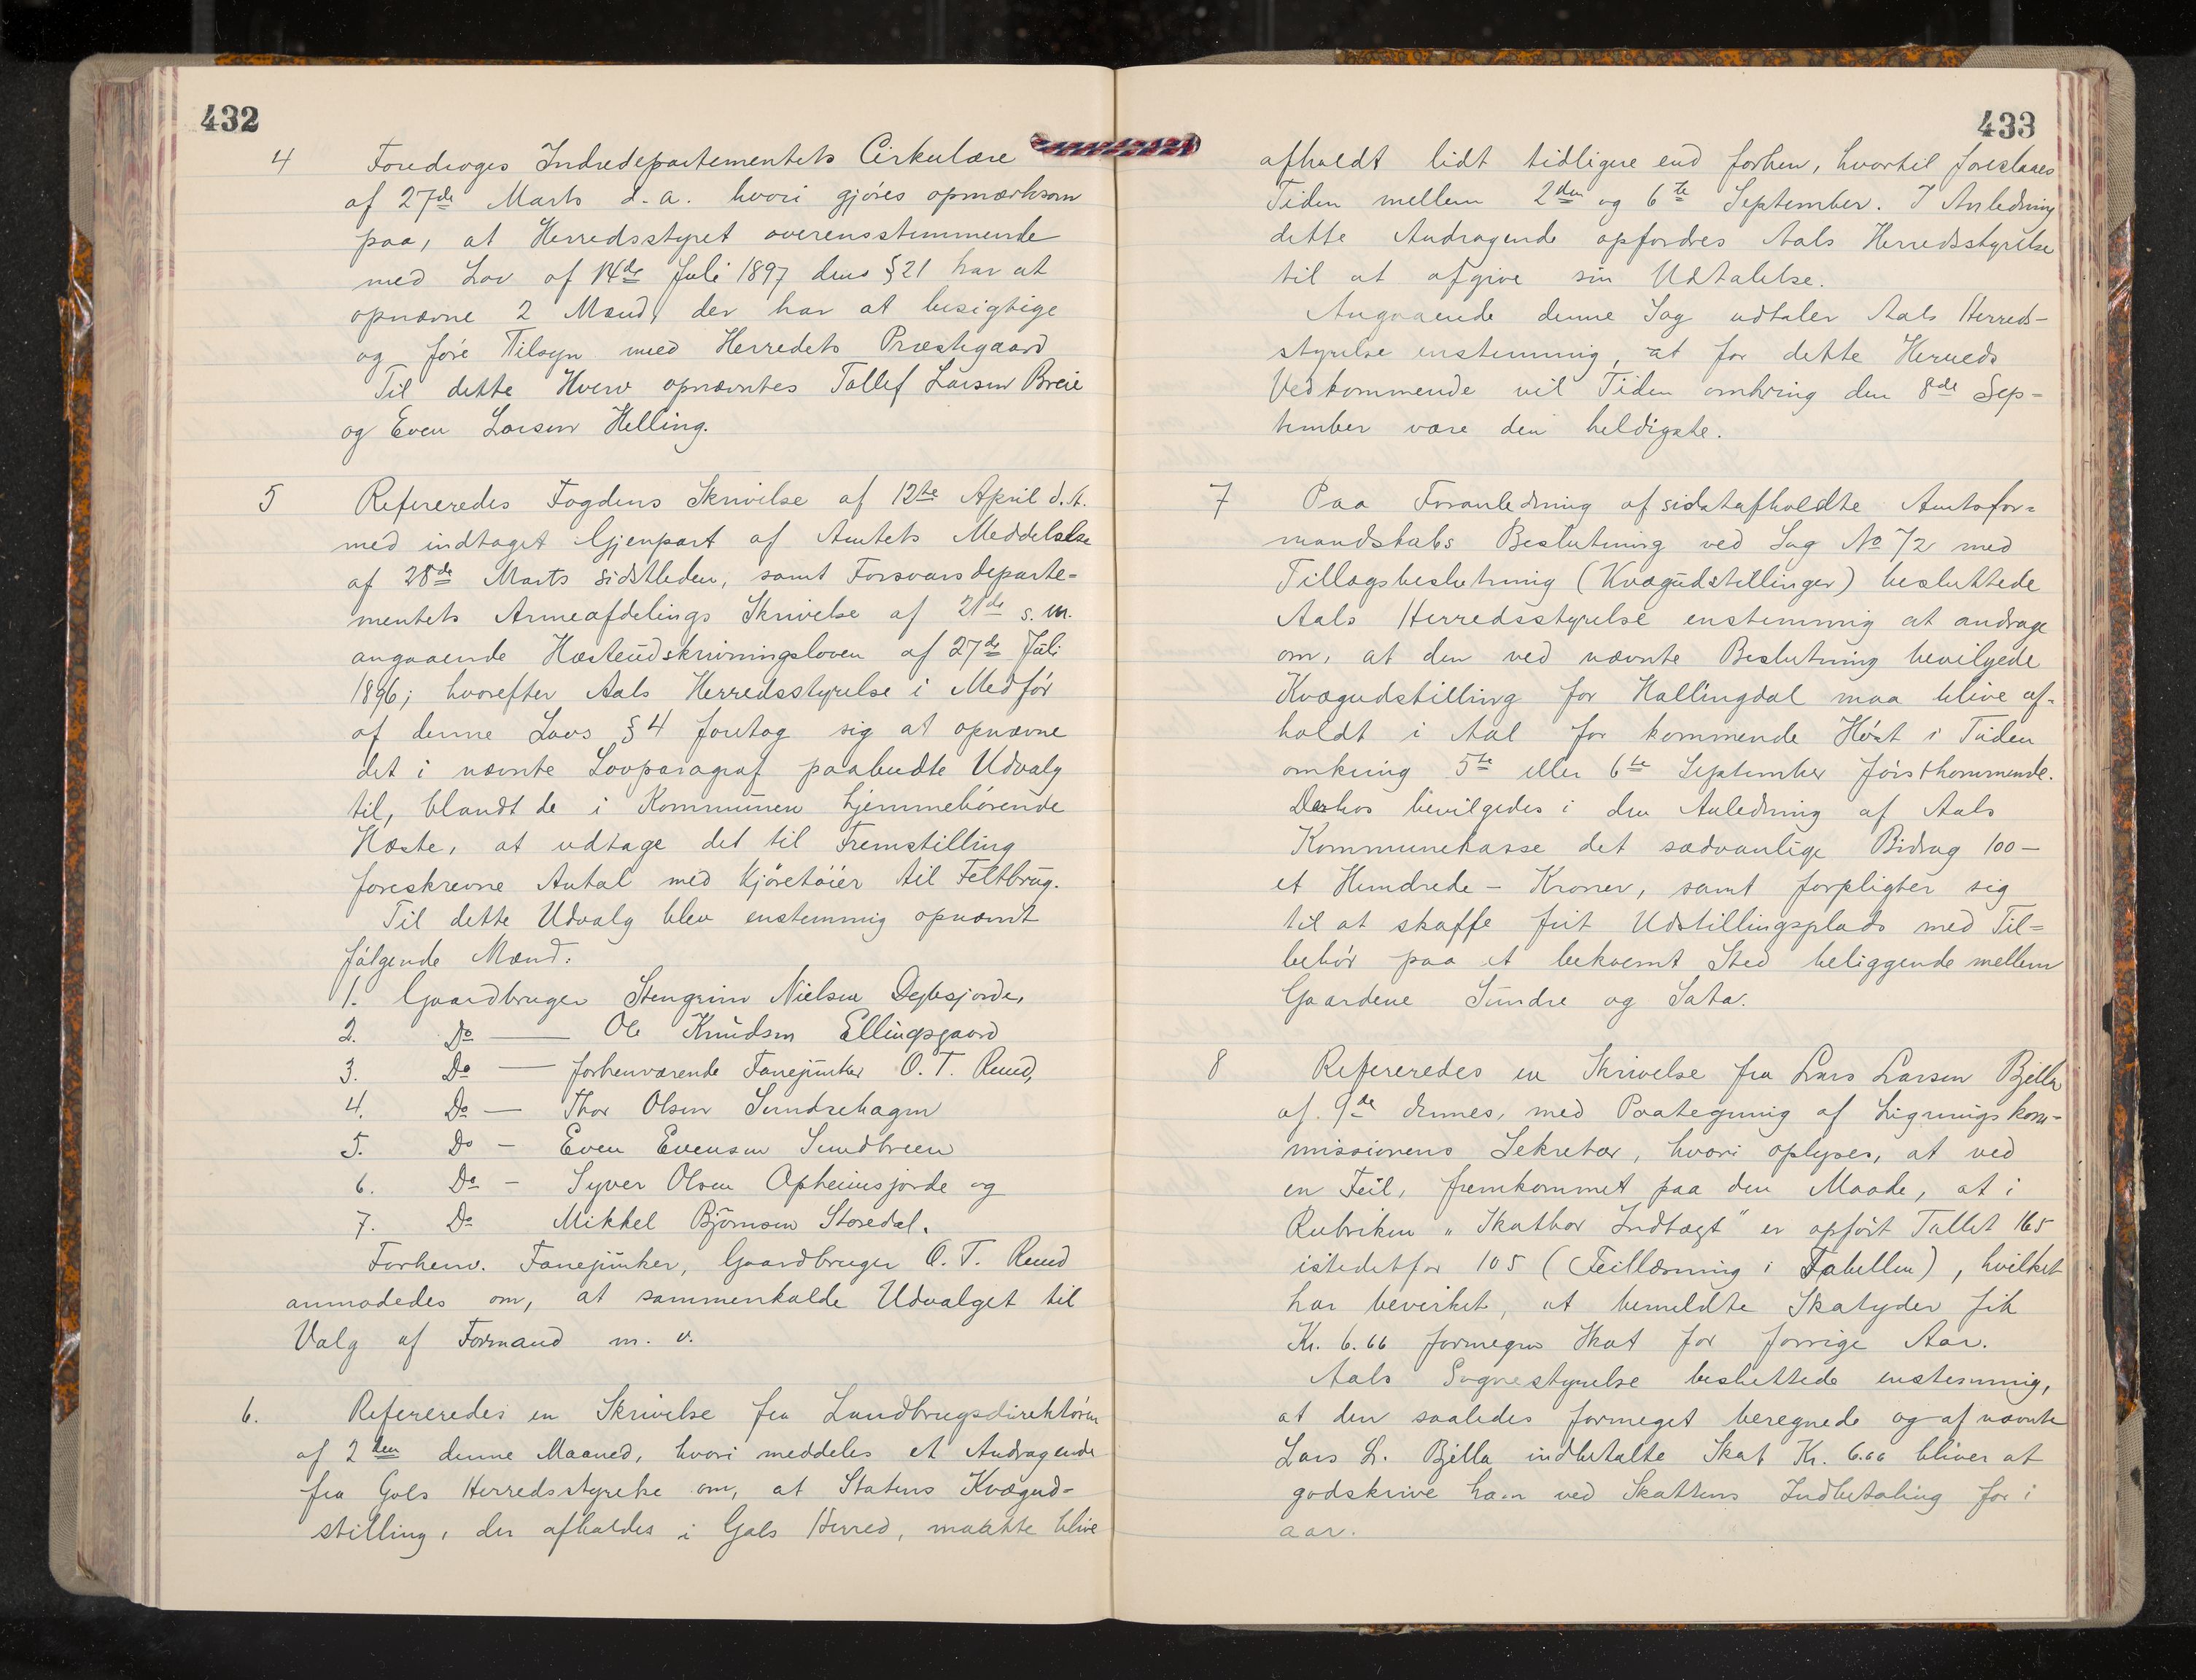 432
4 Foredroges Indredepartementets Cirkulære
af 27de Marts d.a. hvori gjøres opmærksom
paa, at Herredsstyret overensstemmende
med Lov af 14de Juli 1897 dens § 21 har at
opnævne 2 Mænd, der har at besigtige
og føre Tilsyn med Herredets Præstegaard
Til dette Hverv opnævntes Tollef Larsen Breie
og Even Larsen Helling.
5 Refereredes Fogdens Skrivelse af 12te April d.A.
med indtaget Gjenpart af Amtets Meddelelse
af 28de Marts sidstleden, samt Forsvarsdeparte=
mentets Armeafdelings Skrivelse af 21de s.m.
angaaende Hesteudskrivningsloven af 27de Juli
1896; hvorefter Aals Herredsstyrelse i Medfør
af denne Lovs § 4 foretog sig at opnævne
det i nævnte Lovparagraf paabudte Udvalg
til, blandt de i Kommunen hjemmehørende
Heste, at udtage det til Fremstilling
foreskrevne Antal med Kjøretøier til Feltbrug.
Til dette Udvalg blev enstemmig opnævnt
følgende Mænd:
1. Gaardbruger Stengrim Nielsen
2. Do — Ole Knudsen Ellingsgaard
3. Do — forhenværende Fanejunker O. T. Ruud,
4. Do — Thor Olsen Sundrehagen
5. Do — Even Evensen Sundbreen
6. Do — Syver Olsen Opheimsjorde og
7. Do Mikkel Bjørnsen Storedal.
Forhenv. Fanejunker, Gaardbruger O. T. Ruud
anmodedes om, at sammenkalde Udvalget til
Valg af Formand m. v.
6. Refereredes en Skrivelse fra Landbrugsdirektøren
af 2den denne Maaned, hvori meddeles et Andragende
fra Gols Herredsstyrelse om, at Statens Kvægud=
stilling, der afholdes i Gols Herred, maatte blive
433
afholdt lidt tidligere end forhen, hvortil foreslaaes
Tiden mellem 2den og 6te September. I Anledning
dette Andragende opfordres Aals Herredsstyrelse
til at afgive sin Udtalelse.
Angaaende denne Sag udtaler Aals Herreds-
styrelse enstemmig, at for dette Herreds
Vedkommende vil Tiden omkring den 8de Sep=
tember være den heldigste.
7 Paa Foranledning af sidstafholdte Amtsfor=
mandskabs Beslutning ved Sag No 72 med
Tillægsbeslutning (Kvægudstillinger) besluttede
Aals Herredsstyrelse enstemmig at andrage
om, at den ved nævnte Beslutning bevilgede
Kvægudstilling for Hallingdal maa blive af-
holdt i Aal for kommende Høst i Tiden
omkring 5te eller 6te September førstkommende.
Derhos bevilgedes i den Anledning af Aals
Kommunekasse det sædvanlige Bidrag 100 —
et Hundrede — Kroner, samt forpligter sig
til at skaffe frit Udstillingsplads med Til=
behør paa et bekvemt Sted beliggende mellem
Gaardene Sundre og Sata.
8 Refereredes en Skrivelse fra Lars Larsen Bjella
af 9de dennes, med Paategning af Ligningskom-
missionens Sekretær, hvori oplyses, at ved
en Feil, fremkommet paa den Maade, at i
Rubriken „Skatbar Indtægt" er opført Tallet 165
istedetfor 105 (Feillæsning i Tabellen), hvilket
har bevirket, at bemeldte Skatyder fik
Kr. 6.66 formegen Skat for forrige Aar.
Aals Sognestyrelse besluttede enstemmig,
at den saaledes formeget beregnede og af nævnte
Lars L. Bjella indbetalte Skat Kr. 6.66 bliver at
godskrive ham ved Skattens Indbetaling for i
aar.